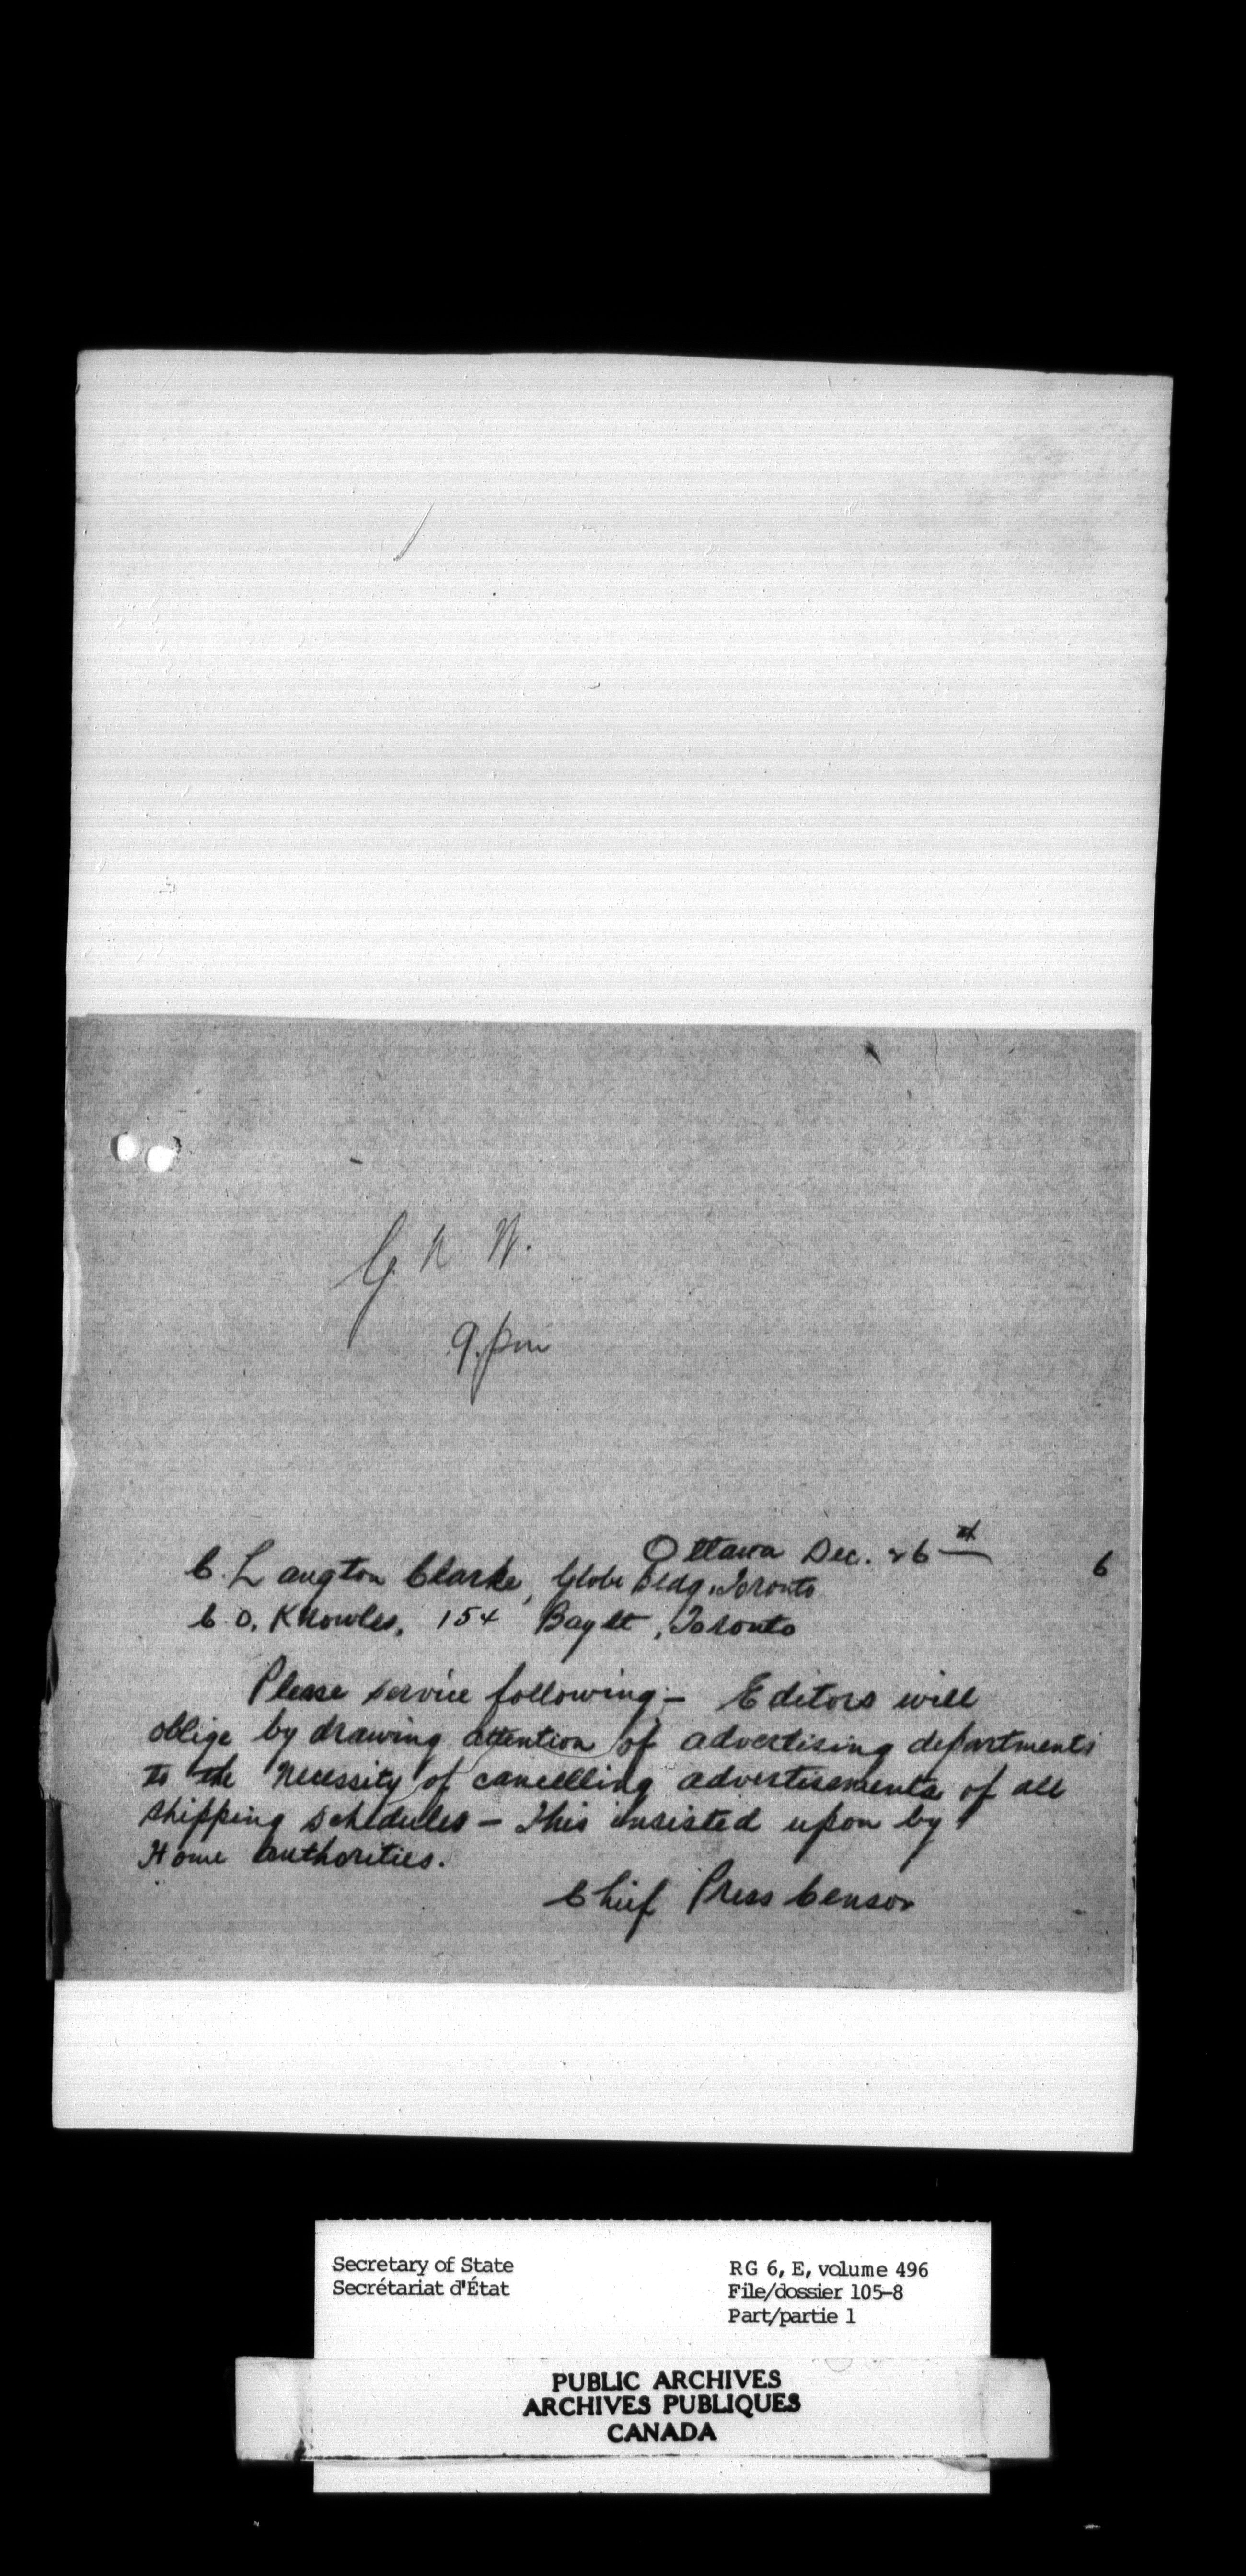 G. N. W.
9.pm
Ottawa Dec. 26th
6
C. Langton Clarke, Globe Bldg, Toronto
C. O. Knowles, 154 Bay St, Toronto
Please service following:- Editors will
oblige by drawing attention of advertising departments
to the necessity of cancelling advertisements of all
shipping schedules - This insisted upon by
Home authorities.
Chief Press Censor
Secretary of State
Secrétariat d'État
RG 6, E, volume 496
File/dossier 105-8
Part/partie 1
PUBLIC ARCHIVES
ARCHIVES PUBLIQUES
CANADA